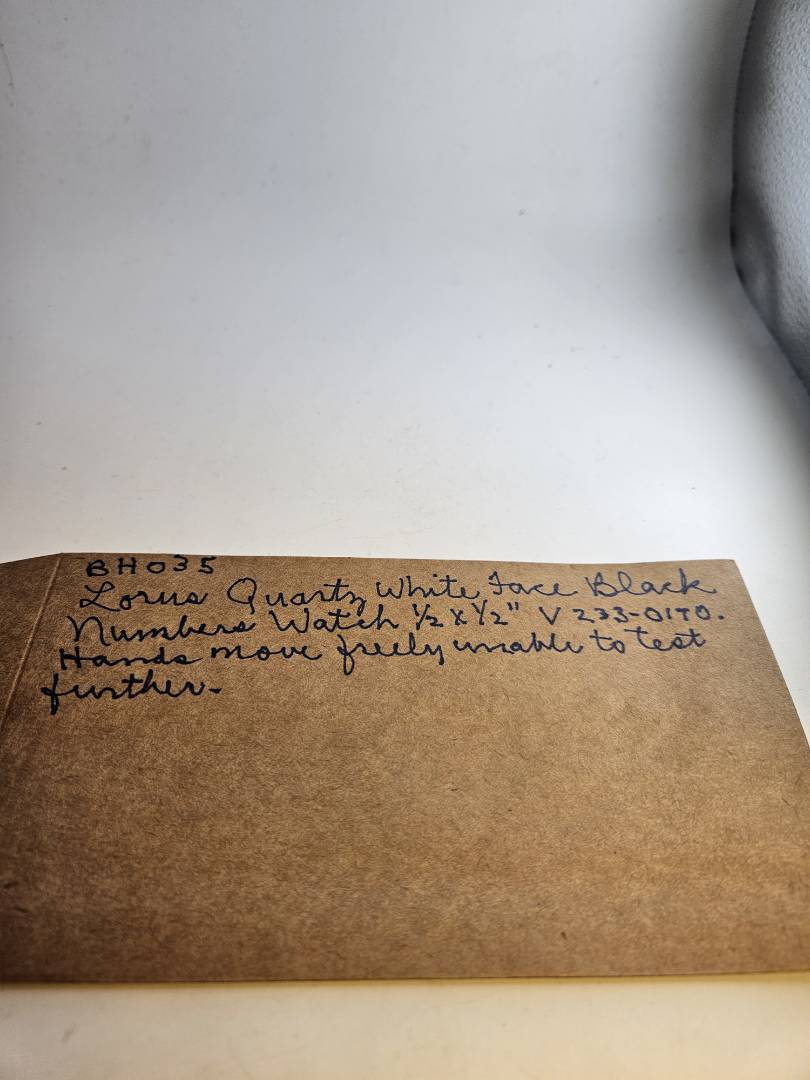 BH035
Lorus Quartz White Face Black
Numbers Watch ½ x ½" V 233-0170.
Hands move freely unable to test
further.